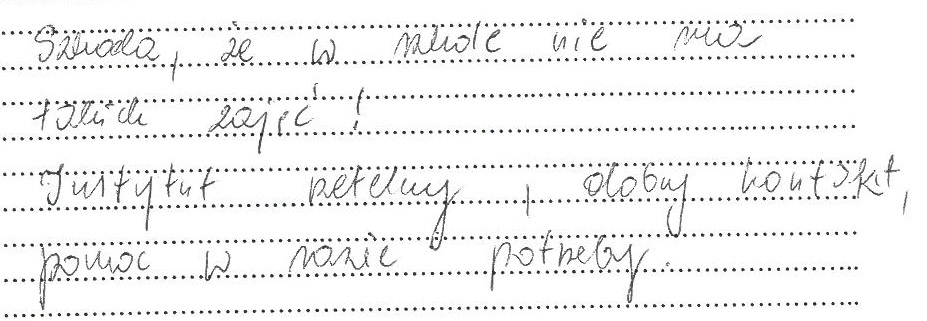 Szkoda, że w szkole nie ma
takich zajęć!
Instytut rzetelny, dobry kontakt,
pomoc w razie potrzeby.